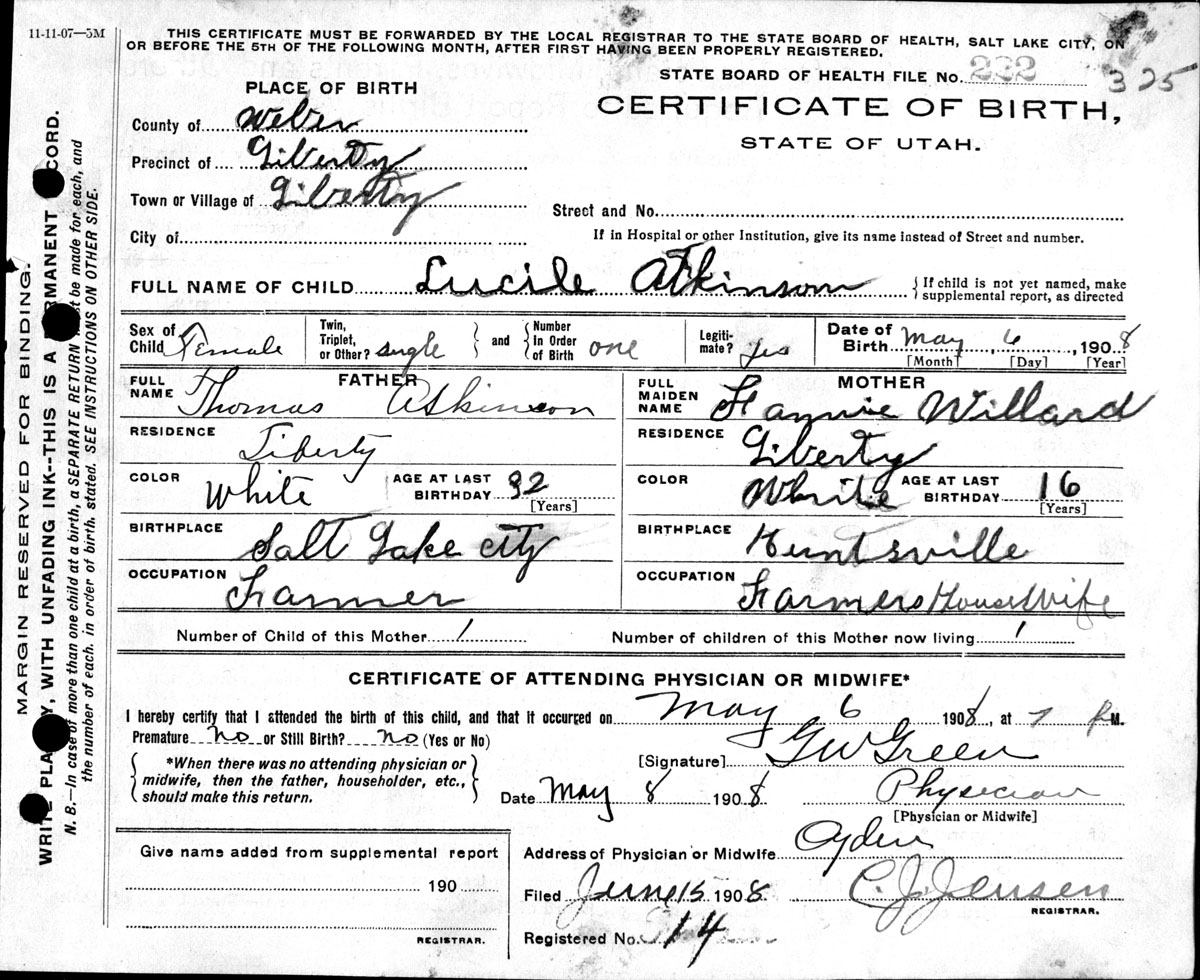 11-11-07—5M
THIS CERTIFICATE MUST BE FORWARDED BY THE LOCAL REGISTRAR TO THE STATE BOARD OF HEALTH, SALT LAKE CITY, ON
OR BEFORE THE 5TH OF THE FOLLOWING MONTH, AFTER FIRST HAVING BEEN PROPERLY REGISTERED.
STATE BOARD OF HEALTH FILE No. 232 325
PLACE OF BIRTH
CERTIFICATE OF BIRTH,
STATE OF UTAH.
County of Weber
Precinct of Liberty
Town or Village of Liberty
Street and No.
City of
If in Hospital or other Institution, give its name instead of Street and number.
FULL NAME OF CHILD Lucile Atkinson { If child is not yet named, make
supplemental report, as directed
Sex of Child Female Twin, Triplet, or Other? single and Number In Order of Birth one Legiti-mate? yes Date of Birth May 6, 1908
[Month] [Day] [Year]
FATHER
FULL NAME Thomas Atkinson
RESIDENCE Liberty
COLOR White AGE AT LAST BIRTHDAY 32
[Years]
BIRTHPLACE Salt Lake City
OCCUPATION Farmer
MOTHER
FULL MAIDEN NAME Fannie Willard
RESIDENCE Liberty
COLOR White AGE AT LAST BIRTHDAY 16
[Years]
BIRTHPLACE Huntsville
OCCUPATION Farmers Housewife
Number of Child of this Mother 1 Number of children of this Mother now living 1
CERTIFICATE OF ATTENDING PHYSICIAN OR MIDWIFE*
I hereby certify that I attended the birth of this child, and that it occurred on May 6 1908, at 7 P M.
Premature No or Still Birth? No (Yes or No)
*When there was no attending physician or
midwife, then the father, householder, etc.,
should make this return.
[Signature] G W Green
Date May 8 1908 Physician
[Physician or Midwife]
Give name added from supplemental report
190
REGISTRAR.
Address of Physician or Midwife Ogden
Filed June 15 1908 C. J. Jensen
REGISTRAR.
Registered No. 14
MARGIN RESERVED FOR BINDING.
WRITE PLA Y, WITH UNFADING INK--THIS IS A RMANENT CORD.
N. B.—In case of more than one child at a birth, a SEPARATE RETURN st be made for each, and
the number of each, in order of birth, stated. SEE INSTRUCTIONS ON OTHER SIDE.